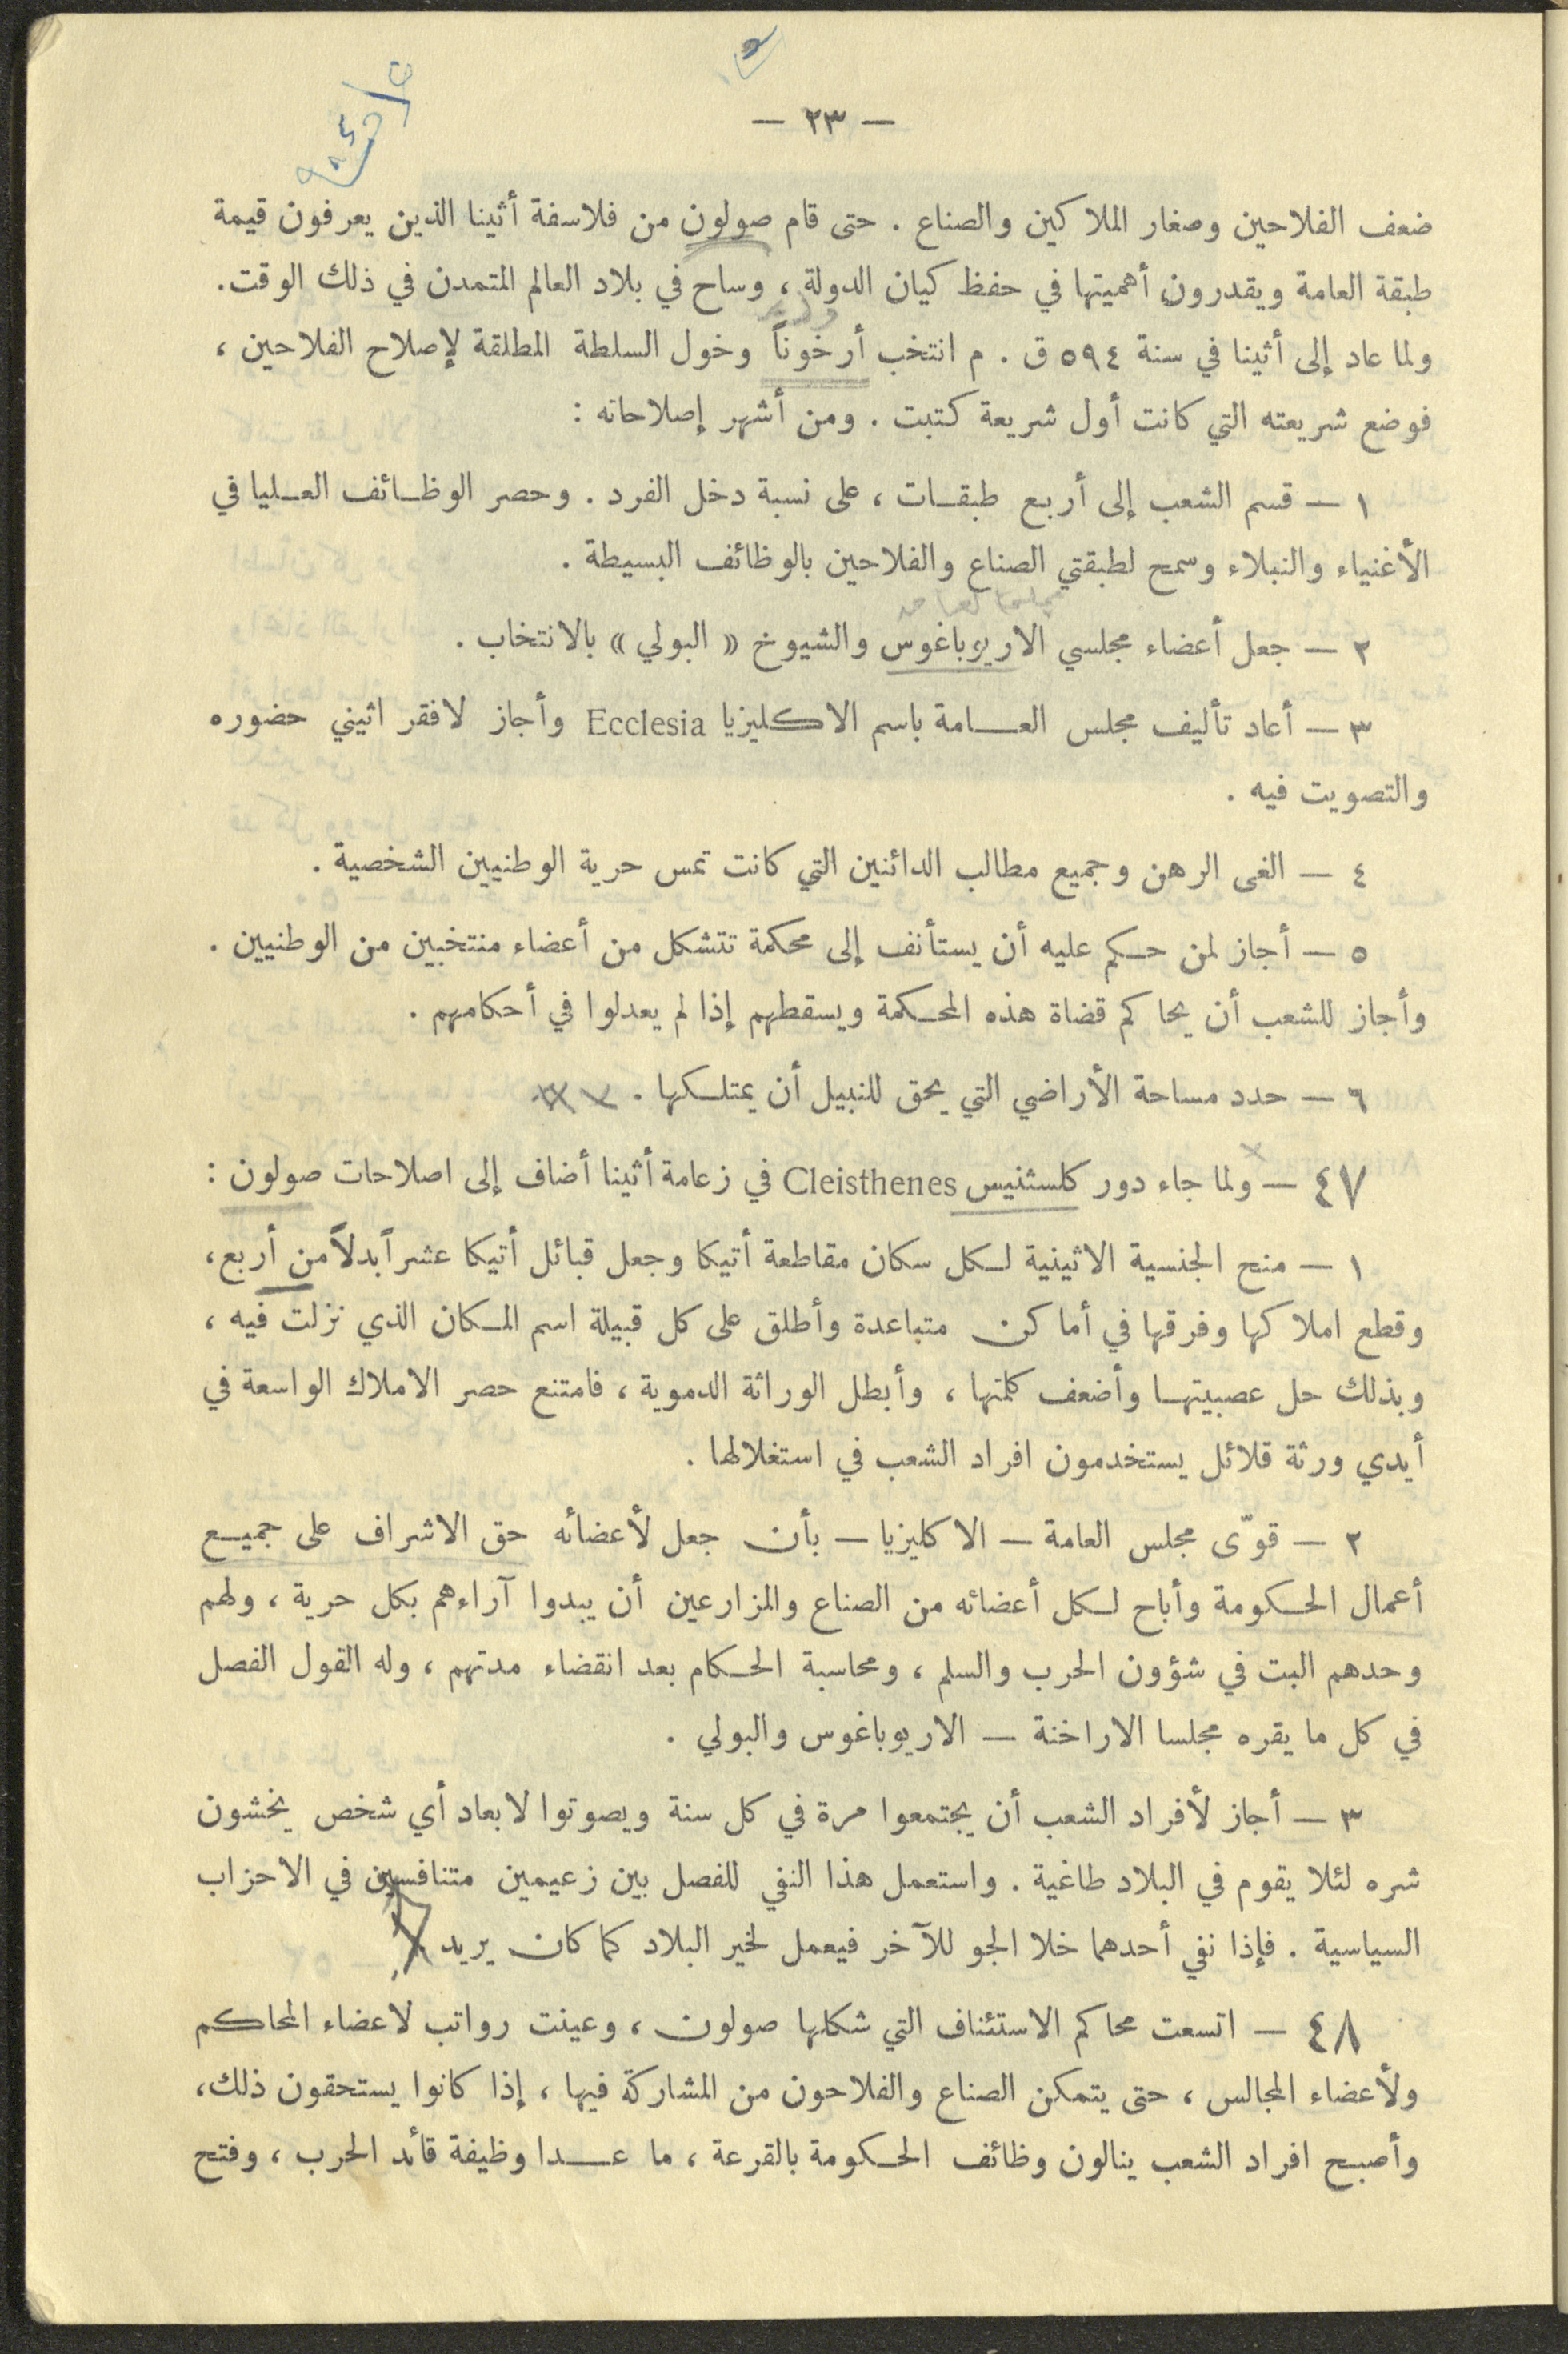 — ٢٣ —
ضعف الفلاحين وصغار الملاكين والصناع . حتى قام صولون من فلاسفة أثينا الذين يعرفون قيمة
طبقة العامة ويقدرون أهميتها في حفظ كيان الدولة ، وساح في بلاد العالم المتمدن في ذلك الوقت.
ولما عاد إلى أثينا في سنة ٥٩٤ ق . م انتخب أرخوناً وخول السلطة المطلقة لإصلاح الفلاحين ،
فوضع شريعته التي كانت أول شريعة كتبت . ومن أشهر إصلاحاته :
١ — قسم الشعب إلى أربع طبقات ، على نسبة دخل الفرد . وحصر الوظائف العليا في
الأغنياء والنبلاء وسمح لطبقتي الصناع والفلاحين بالوظائف البسيطة .
٢ — جعل أعضاء مجلسي الاريوباغوس والشيوخ « البولي » بالانتخاب .
٣ — أعاد تأليف مجلس العامة باسم الاكليزيا Ecclesia وأجاز لافقر اثيني حضوره
والتصويت فيه .
٤ — الغى الرهن وجميع مطالب الدائنين التي كانت تمس حرية الوطنيين الشخصية .
٥ — أجاز لمن حكم عليه أن يستأنف إلى محكمة تتشكل من أعضاء منتخبين من الوطنيين .
وأجاز للشعب أن يحاكم قضاة هذه المحكمة ويسقطهم إذا لم يعدلوا في أحكامهم .
٦ — حدد مساحة الأراضي التي يحق للنبيل أن يمتلكها .
٤٧ — ولما جاء دور كلستنيس Cleisthenes في زعامة أثينا أضاف إلى اصلاحات صولون :
١ — منح الجنسية الاثينية لكل سكان مقاطعة أتيكا وجعل قبائل أتيكا عشراً بدلاً من أربع،
وقطع املاكها وفرقها في أماكن متباعدة وأطلق على كل قبيلة اسم المكان الذي نزلت فيه ،
وبذلك حل عصبيتها وأضعف كلمتها ، وأبطل الوراثة الدموية ، فامتنع حصر الاملاك الواسعة في
أيدي ورثة قلائل يستخدمون افراد الشعب في استغلالها .
٢ — قوّى مجلس العامة — الاكليزيا — بأن جعل لأعضائه حق الاشراف على جميع
أعمال الحكومة وأباح لكل أعضائه من الصناع والمزارعين أن يبدوا آراءهم بكل حرية ، ولهم
وحدهم البت في شؤون الحرب والسلم ، ومحاسبة الحكام بعد انقضاء مدتهم ، وله القول الفصل
في كل ما يقره مجلسا الاراخنة — الاريوباغوس والبولي .
٣ — أجاز لأفراد الشعب أن يجتمعوا مرة في كل سنة ويصوتوا لابعاد أي شخص يخشون
شره لئلا يقوم في البلاد طاغية . واستعمل هذا النفي للفصل بين زعيمين متنافسين في الاحزاب
السياسية . فإذا نفي أحدهما خلا الجو للآخر فيعمل لخير البلاد كما كان يريد
٤٨ — اتسعت محاكم الاستئناف التي شكلها صولون ، وعينت رواتب لاعضاء المحاكم
ولأعضاء المجالس ، حتى يتمكن الصناع والفلاحون من المشاركة فيها ، إذا كانوا يستحقون ذلك،
وأصبح افراد الشعب ينالون وظائف الحكومة بالقرعة ، ما عدا وظيفة قائد الحرب ، وفتح